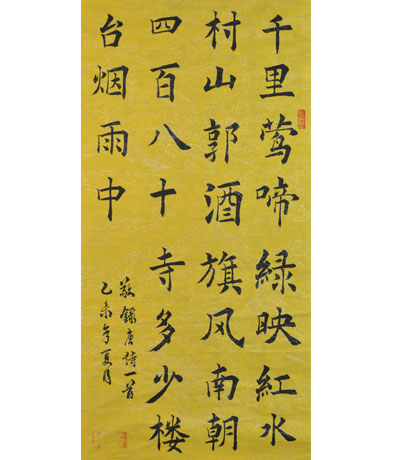 千里莺啼緑映紅水
村山郭酒旗风南朝
四百八十寺多少楼
台烟雨中
敬録唐诗一首
乙未年夏月